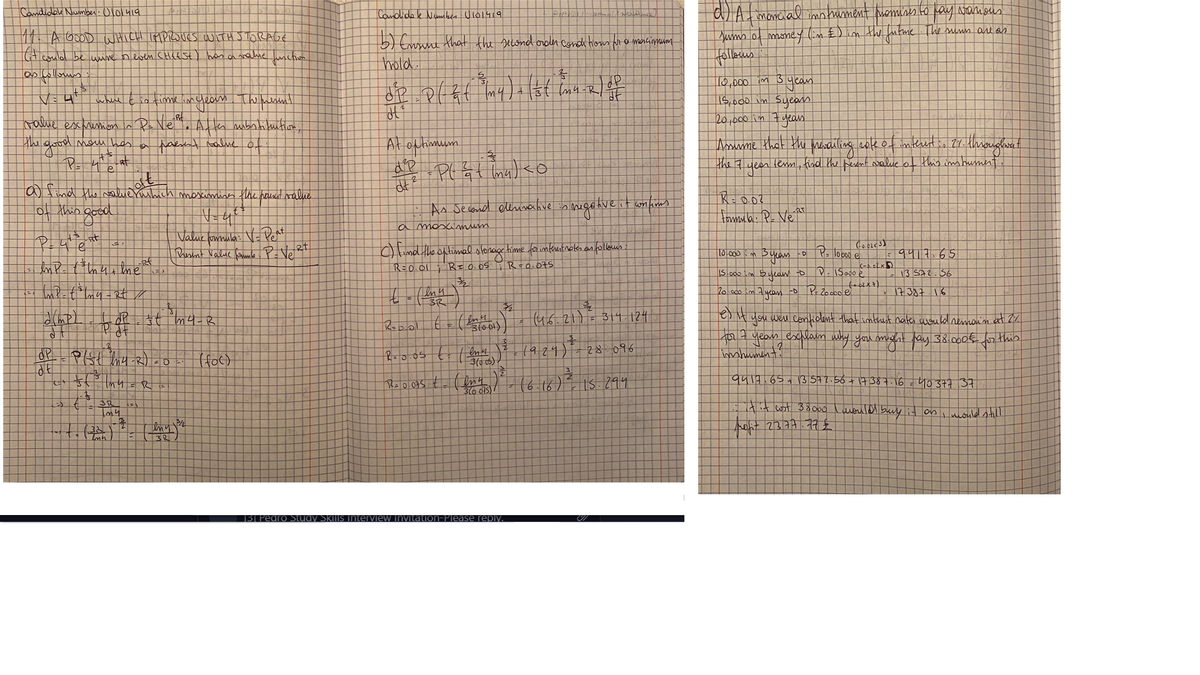 Candidate Number: U101419
11. A GOOD WHICH IMPROVES WITH STORAGE
(it could be wine or even CHEESE) has a value function
as follows:
V = 4^t^⅓ where t is time in years. The present
value expression is P = Ve^-Rt. After substitution,
the good now has a present value of:
P = 4^t^⅓ e^-Rt
a) Find the value of t which maximises the present value
of this good.
V = 4^t^⅓
Value formula: V = Pe^Rt
Present Value formula P = Ve^-Rt
P = 4^t^⅓ e^-Rt
∴ lnP = t^⅓ ln4 + lne^-Rt
lnP = t^⅓ ln4 - Rt //
d(lnP)/dt = 1/P dP/dt = ⅓t^-⅔ ln4 - R
dP/dt = P(⅓t^-⅔ ln4 - R) = 0 (FOC)
⅓t^-⅔ ln4 = R
t^-⅔ = 3R/ln4
t = (3R/ln4)^-3/2 = (ln4/3R)^3/2
Candidate Number: U101419
b) Ensure that the second order conditions for a maximum
hold.
d²P/dt² = P(-2/9 t^-5/3 ln4) + (⅓t^-⅔ ln4 - R) dP/dt
At optimum
d²P/dt² = P(-2/9 t^-5/3 ln4) < 0
∴ As second derivative is negative it confirms
a maximum
c) Find the optimal storage time for interest rates as follows:
R = 0.01 ; R = 0.05 ; R = 0.075
t = (ln4/3R)^3/2
R = 0.01 t = (ln4/3(0.01))^3/2 = (46.21)^3/2 = 314.124
R = 0.05 t = (ln4/3(0.05))^3/2 = (9.24)^3/2 = 28.096
R = 0.075 t = (ln4/3(0.075))^3/2 = (6.16)^3/2 = 15.294
d) A financial instrument promises to pay various
sums of money (in £) in the future. The sums are as
follows:
10,000 in 3 years
15,000 in 5 years
20,000 in 7 years
Assume that the prevailing rate of interest is 2% throughout
the 7 year term, find the present value of this instrument.
R = 0.02
formula: P = Ve^-Rt
10.000 in 3 years → P = 10000 e^(-0.02×3) = 9417.65
15.000 in 5 years → P = 15000 e^(-0.02×5) = 13572.56
20.000 in 7 years → P = 20000 e^(-0.02×7) = 17387.16
e) If you were confident that interest rates would remain at 2%
for 7 years explain why you might pay 38.000£ for this
instrument?
9417.65 + 13572.56 + 17387.16 = 40377.37
∴ if it cost 38000 I would buy it as I would still
profit 2377.77 £
[3] Pedro Study Skills Interview Invitation-Please reply.